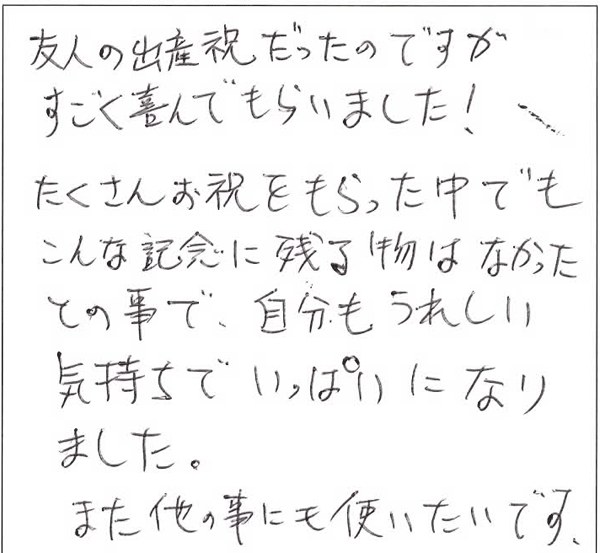 友人の出産祝だったのですが
すごく喜んでもらいました!
たくさんお祝をもらった中でも
こんな記念に残る物はなかった
との事で、自分もうれしい
気持ちでいっぱいになり
ました。
また他の事にも使いたいです、